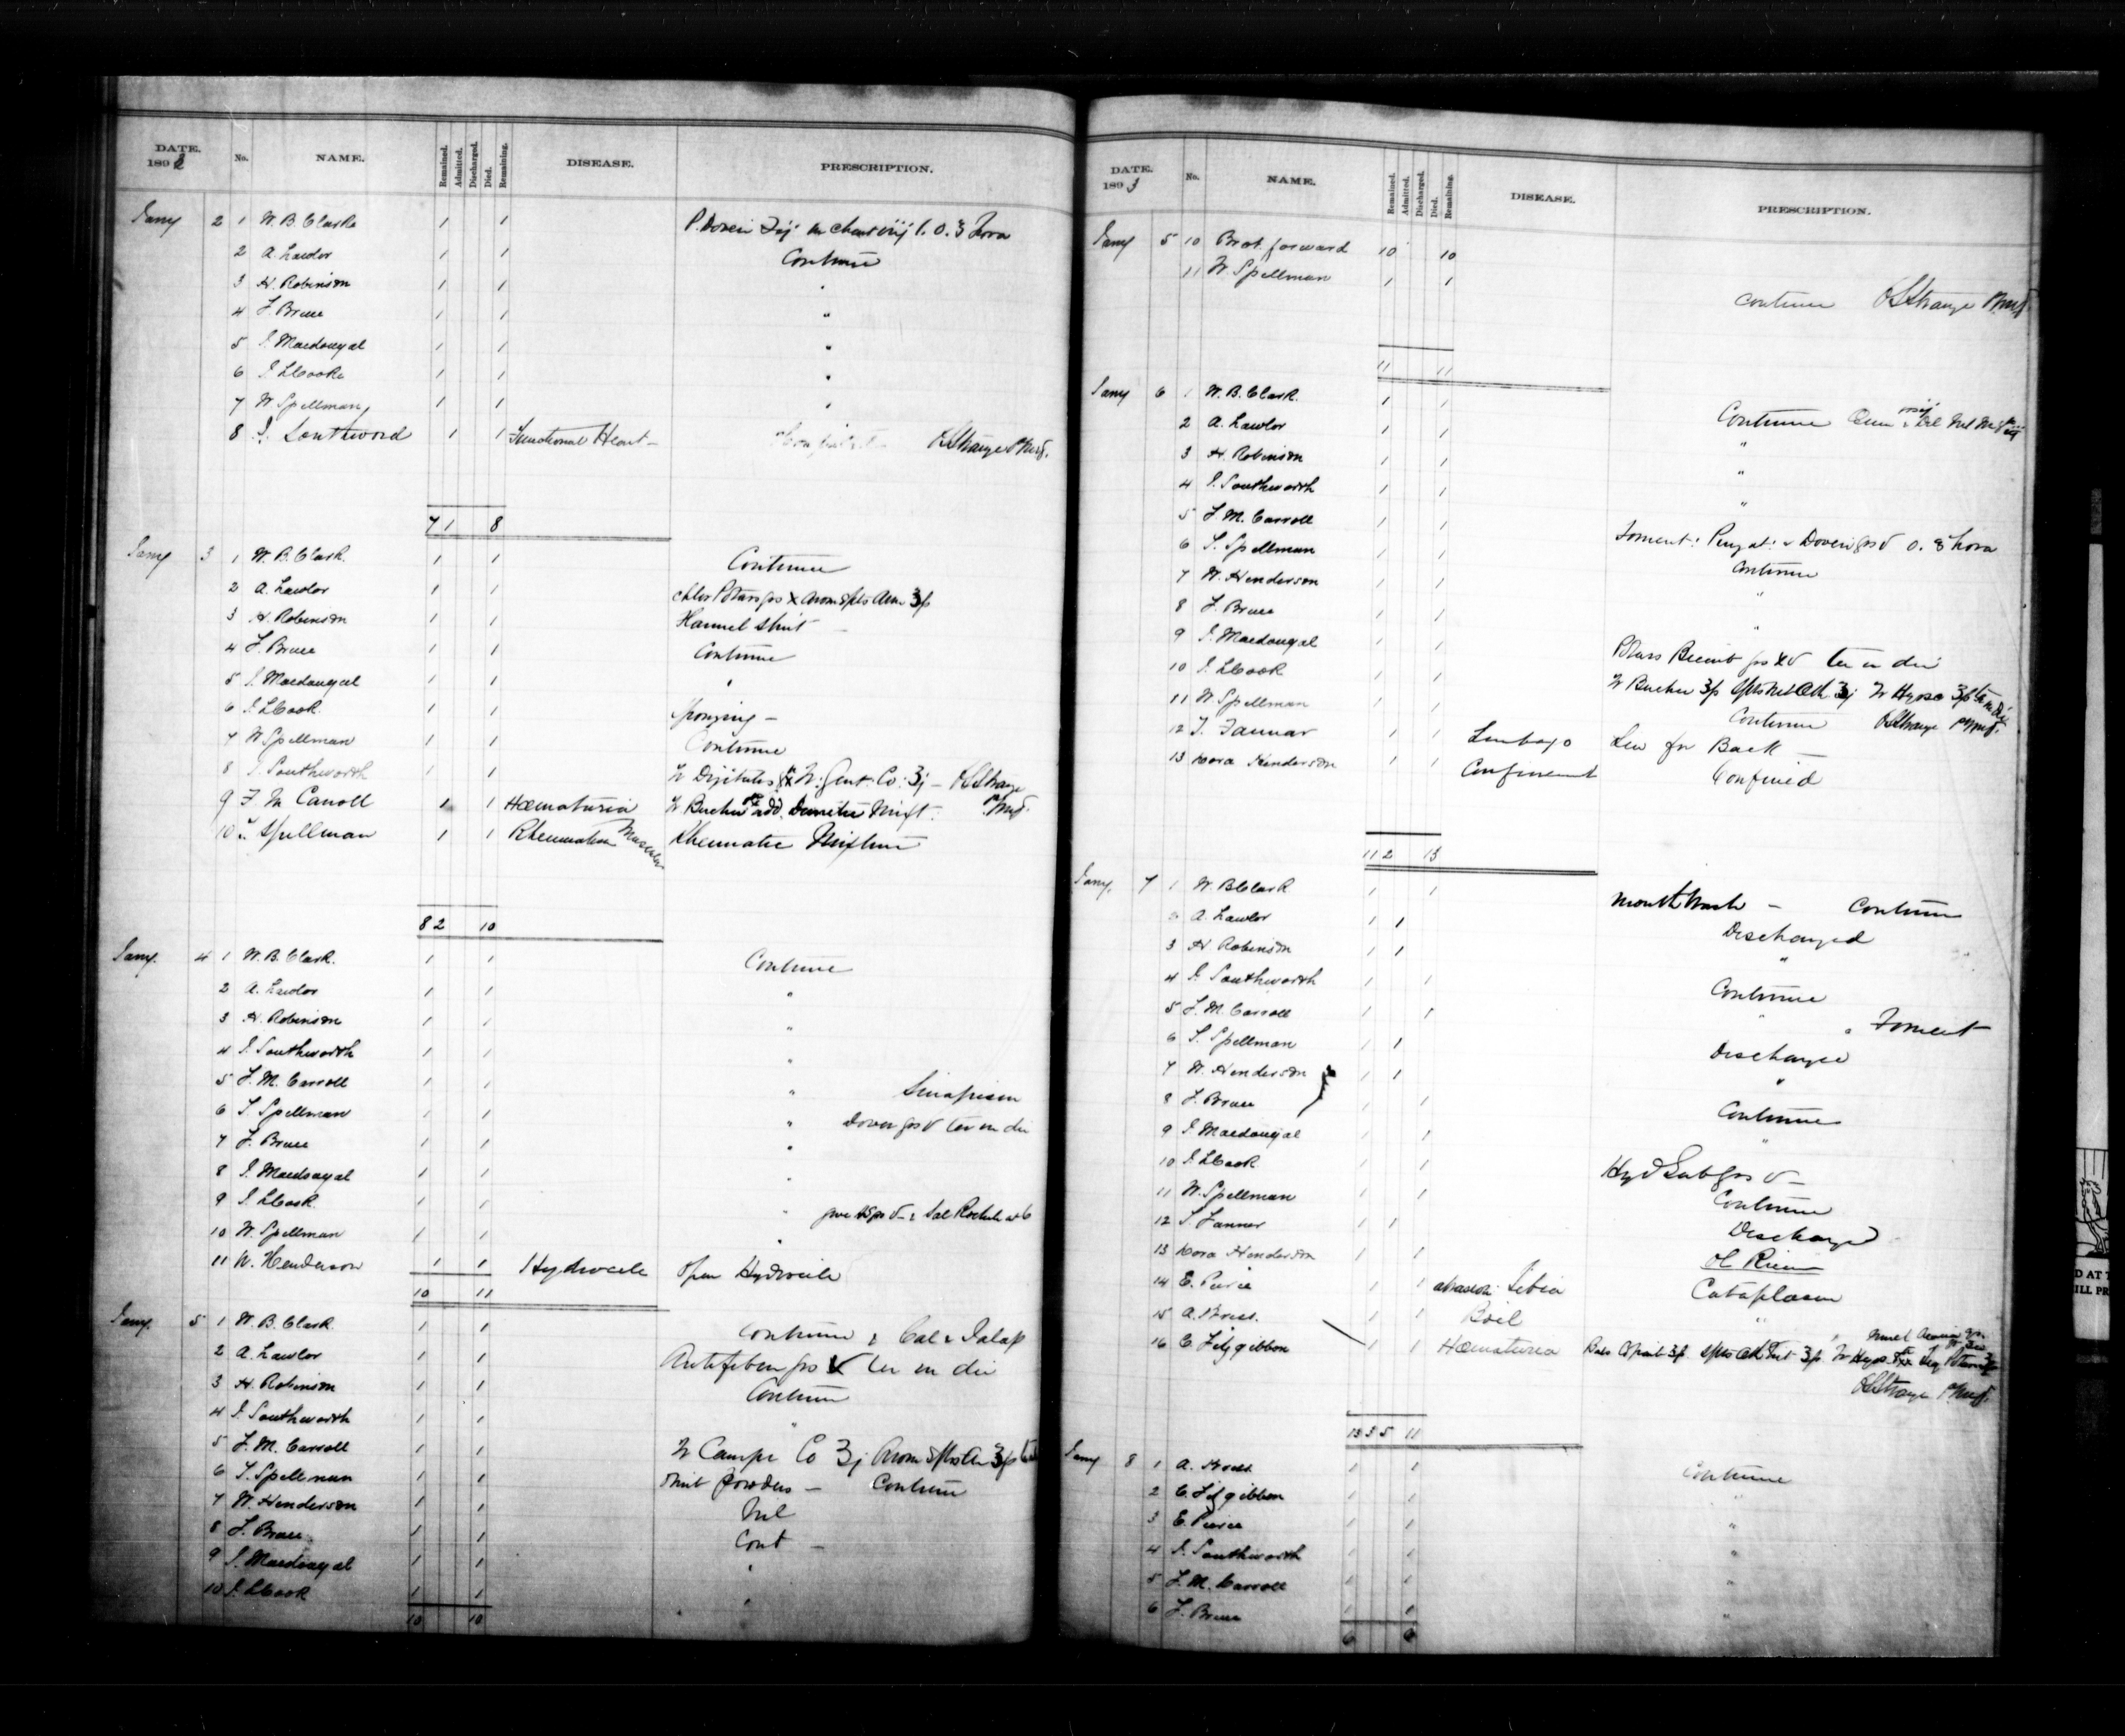 DATE. 1892 No. NAME. Remained. Admitted. Discharged. Died. Remaining. DISEASE. PRESCRIPTION.
Jany 2 1 W. B. Clarke 1 1
2 A. Lawlor 1 1 Continue
3 H. Robinson 1 1 "
4 J. Bruce 1 1 "
5 J. Macdougal 1 1 "
6 J. L Cooke 1 1 "
7 W Spellman 1 1 "
8 J. Southword 1 1 Functional Heart – OLStrange
7 1 8
Jany 3 1 W. B. Clark. 1 1 Continue
2 A. Lawlor 1 1 Chlor Potass grs x Arom Spts Am ʒſ
3 H. Robinson 1 1 Flannel shirt –
4 J. Bruce 1 1 Continue
5 J. Macdougal 1 1 "
6 J. L Cook. 1 1 Sponging –
7 W Spellman 1 1 Continue
8 J. Southworth 1 1 Tr Digitalis Tr. Gent. Co: ʒj – OLStrange
9 J M Carroll 1 1 Hæmaturia Tr Buchu add. Mixt.
10 Spellman 1 1 Rheumatism Muscular Rheumatic Mixture
8 2 10
Jany. 4 1 W. B. Clark. 1 1 Continue
2 A. Lawlor 1 1 "
3 H. Robinson 1 1 "
4 J. Southworth 1 1 "
5 J. M. Carroll 1 1 " Sinapism
6 S. Spellman 1 1 " Dover grs V ter in die
7 J. Bruce 1 1 "
8 J. Macdougal 1 1 "
9 J. L Cook. 1 1 "
10 W. Spellman 1 1 "
11 W. Henderson 1 1 Hydrocele Open Hydrocele
10 11
Jany. 5 1 W. B. Clark. 1 1 Continue & Cal & Jalap
2 A. Lawlor 1 1 Antifebrin grs V ter in die
3 H. Robinson 1 1 Continue
4 J. Southworth 1 1 "
5 J. M. Carroll 1 1 Tr Camph Co ʒj Arom Spts Am ʒſ
6 S. Spellman 1 1 Omit powders – Continue
7 W. Henderson 1 1 Nil
8 J. Bruce. 1 1 Cont –
9 J. Macdougal 1 1 "
10 J. L Cook 1 1 "
10 10
DATE. 1893 No. NAME. Remained. Admitted. Discharged. Died. Remaining. DISEASE. PRESCRIPTION.
Jany 5 10 Brot. forward 10 10
11 W Spellman 1 1 Continue OLStrange
11 11
Jany 6 1 W. B. Clark. 1 1 Continue
2 A. Lawlor 1 1 "
3 H. Robinson 1 1 "
4 J. Southworth 1 1
5 J. M. Carroll 1 1 Foment: Doveri grs V o. 8 hora
6 S. Spellman 1 1 Continue
7 W. Henderson 1 1 "
8 J. Bruce 1 1 "
9 J. Macdougal 1 1 Potass Bicarb grs XV ter in die
10 J. L Cook 1 1 Tr Buchu ʒſ Tr Hyosc
11 W Spellman 1 1 Continue OLStrange
12 J. Fannar 1 1 Lumbago Lin for Back –
13 Cora Henderson 1 1 Confinement Confined
11 2 13
Jany. 7 1 W. B Clark 1 1 Mouth Wash – Continue
2 A. Lawlor 1 1 Discharged
3 H Robinson 1 1 "
4 J. Southworth 1 1 Continue
5 J. M. Carroll 1 1 " & Foment
6 S. Spellman 1 1 Discharged
7 W. Henderson 1 1 "
8 J. Bruce 1 1 Continue
9 J. Macdougal 1 1 "
10 J. L Cook 1 1 Hyd Sub grs V –
11 W. Spellman 1 1 Continue
12 S. Fanner 1 1 Discharged
13 Cora Henderson 1 1 Ol Ricini
14 E. Pierce 1 1 abrasion: Tibia Cataplasm
15 A. 1 1 Boil "
16 C. Fitzgibbon 1 1 Hæmaturia
OLStrange
13 3 5 11
Jany 8 1 A. 1 1 Continue
2 C. Fitzgibbon 1 1 "
3 E. Pierce 1 1 "
4 J. Southworth 1 1 "
5 J. M. Carroll 1 1 "
6 J. Bruce 1 1 "
6 6